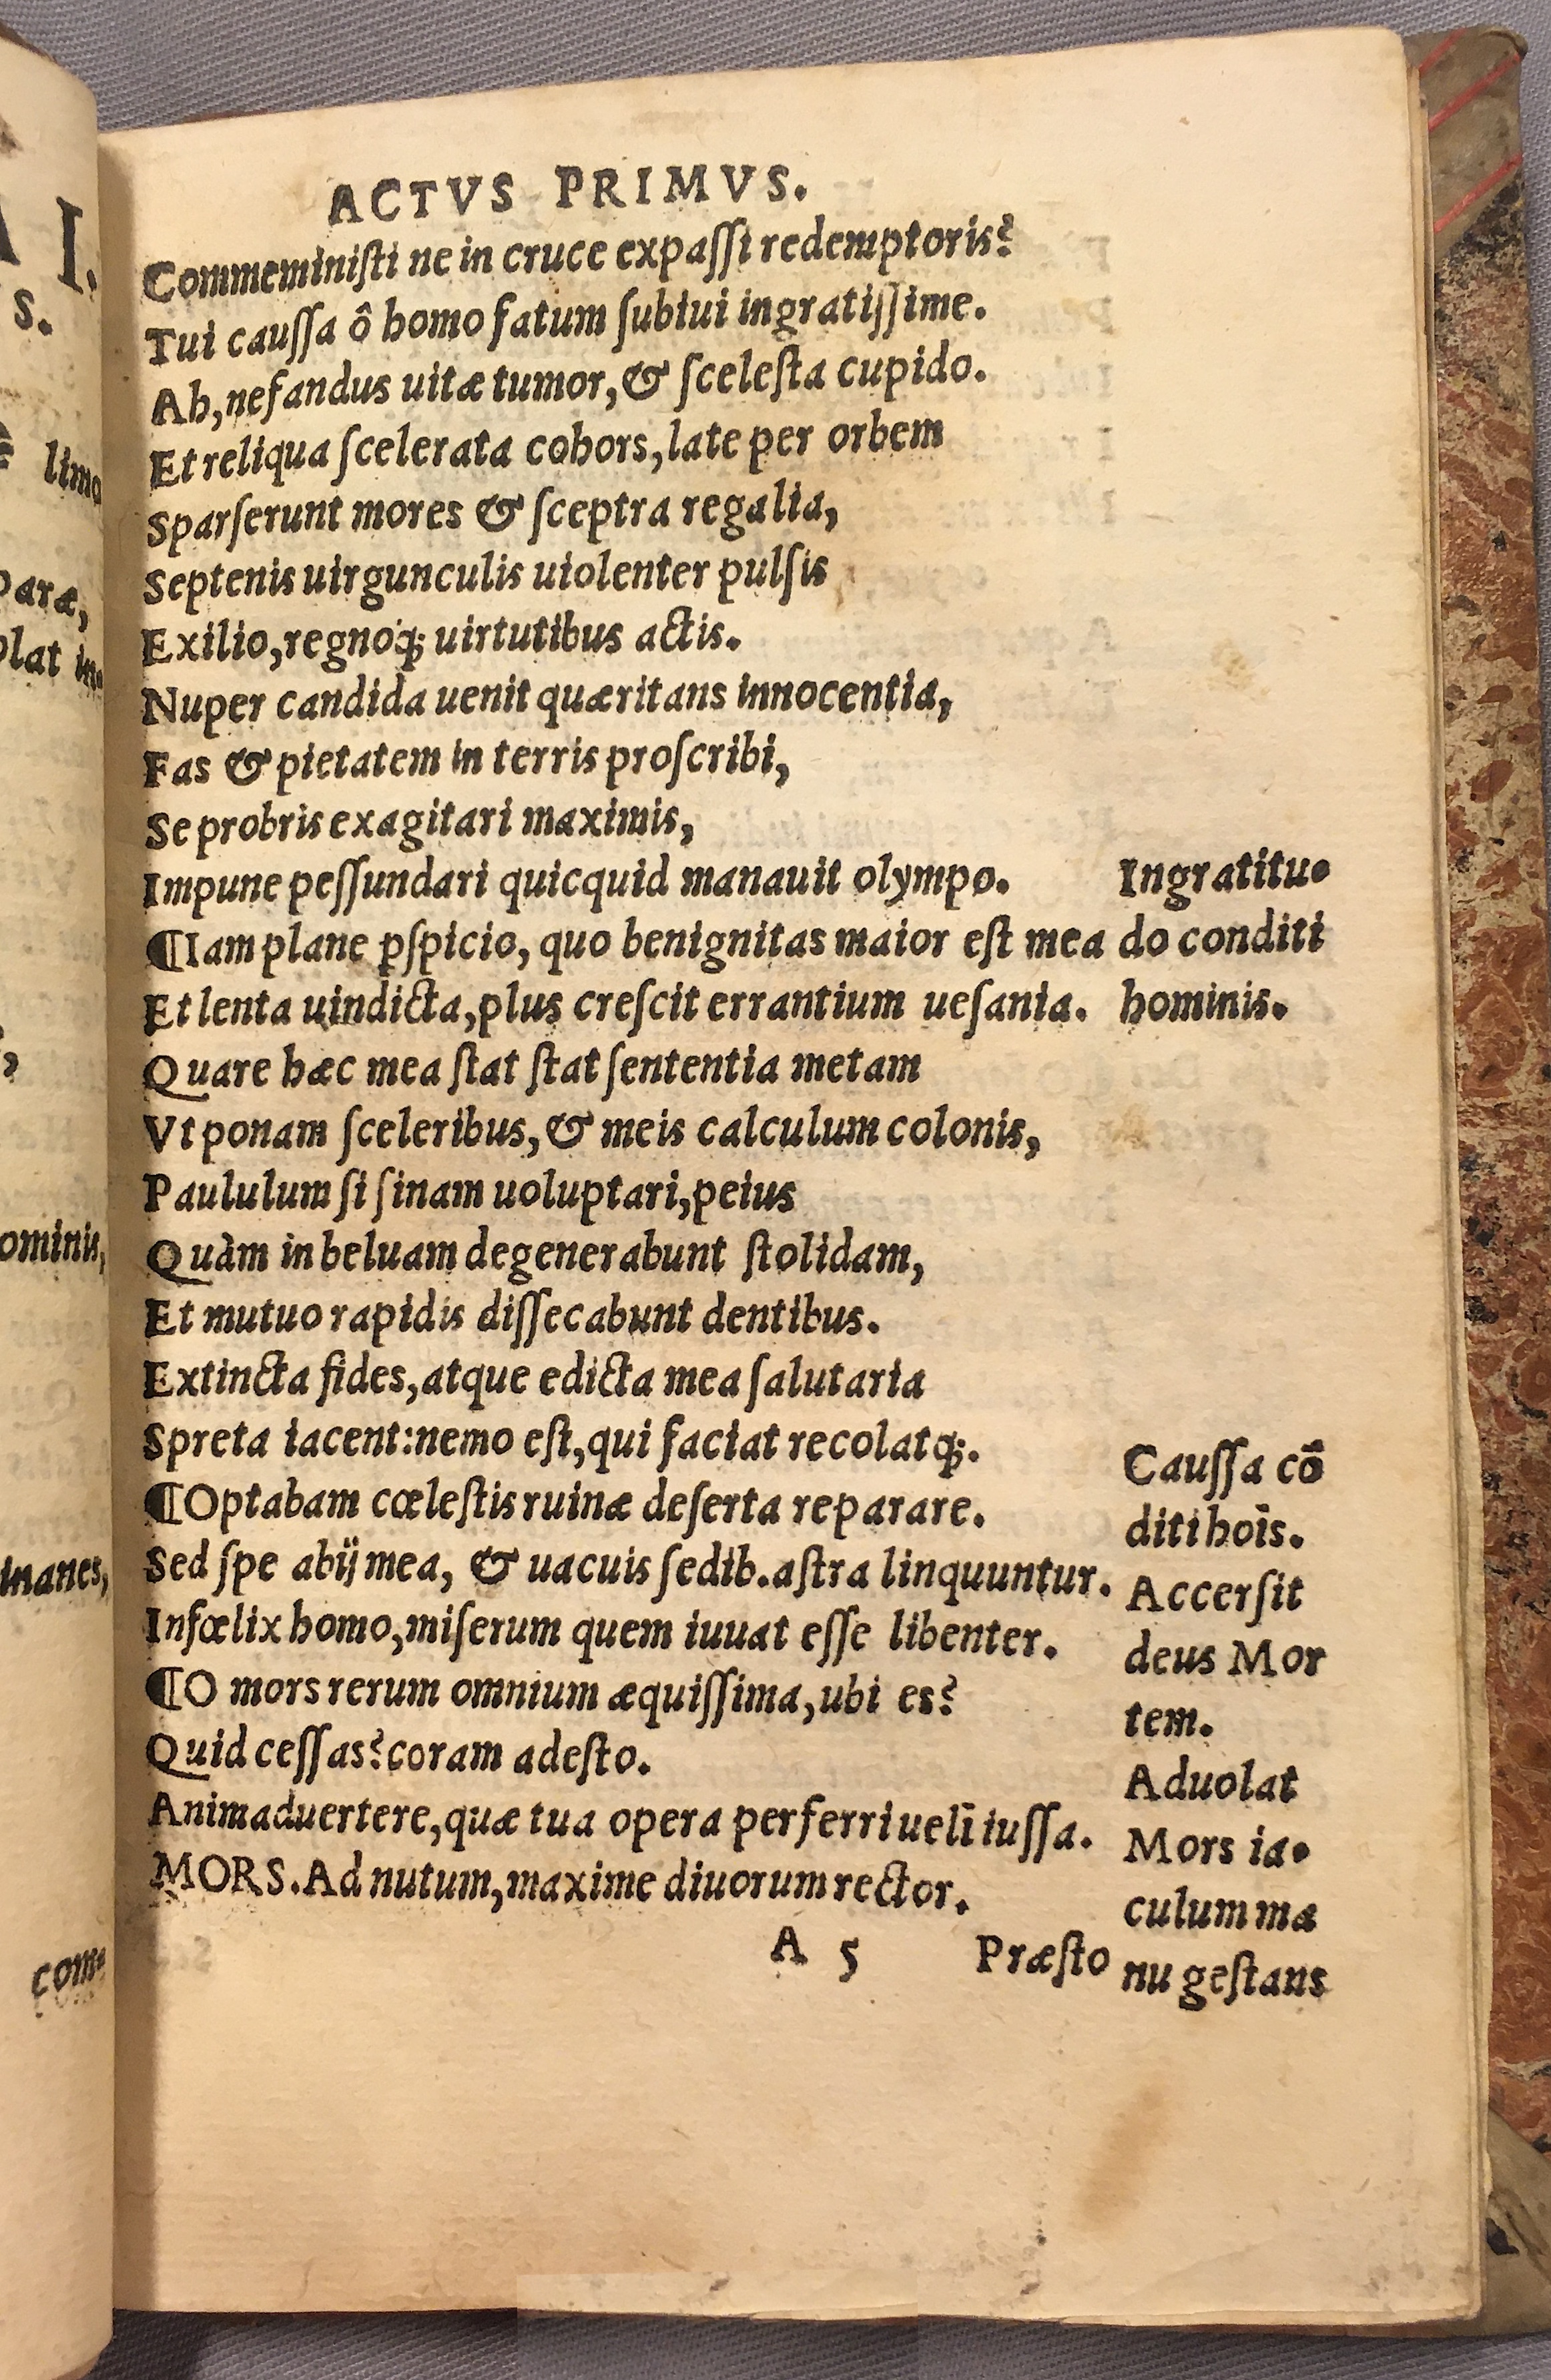 ACTVS PRIMVS.
Commeminiſti ne in cruce expaſſi redemptoris?
Tui cauſſa ô homo fatum ſubiui ingratiſſime.
Ah, nefandus uitæ tumor, & ſceleſta cupido.
Et reliqua ſcelerata cohors, late per orbem
Sparſerunt mores & ſceptra regalia,
Septenis uirgunculis uiolenter pulſis
Exilio, regnoq́; uirtutibus actis.
Nuper candida uenit quæritans innocentia,
Fas & pietatem in terris proſcribi,
Se probris exagitari maximis,
Impune peſſundari quicquid manauit olympo.
¶Iam plane ꝑſpicio, quo benignitas maior eſt mea
Et lenta uindicta, plus creſcit errantium ueſania.
Quare hæc mea ſtat ſtat ſententia metam
Vt ponam ſceleribus, & meis calculum colonis,
Paululum ſi ſinam uoluptari, peius
Quàm in beluam degenerabunt ſtolidam,
Et mutuo rapidis diſſecabunt dentibus.
Extincta fides, atque edicta mea ſalutaria
Spreta iacent: nemo eſt, qui faciat recolatq;.
¶Optabam cœleſtis ruinæ deſerta reparare.
Sed ſpe abij mea, & uacuis ſedib. aſtra linquuntur.
Infœlix homo, miſerum quem iuuat eſſe libenter.
¶O mors rerum omnium æquiſſima, ubi es?
Quid ceſſas? coram adeſto.
Animaduertere, quæ tua opera perferri uelī iuſſa.
MORS. Ad nutum, maxime diuorum rector.
A 5 Præſto
Ingratitu-
do conditi
hominis.
Cauſſa cō
diti hoīs.
Accerſit
deus Mor
tem.
Aduolat
Mors ia-
culum ma
nu geſtans
I.
S.
ominis,
inanes,